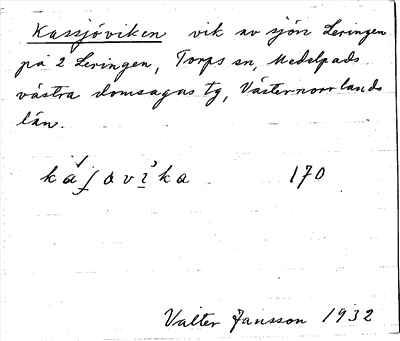 Kassjöviken vik av sjön Leringen
på 2 Leringen, Torps sn, Medelpads
västra domsagas tg, Västernorrlands
län.
170
Valter Jansson 1932